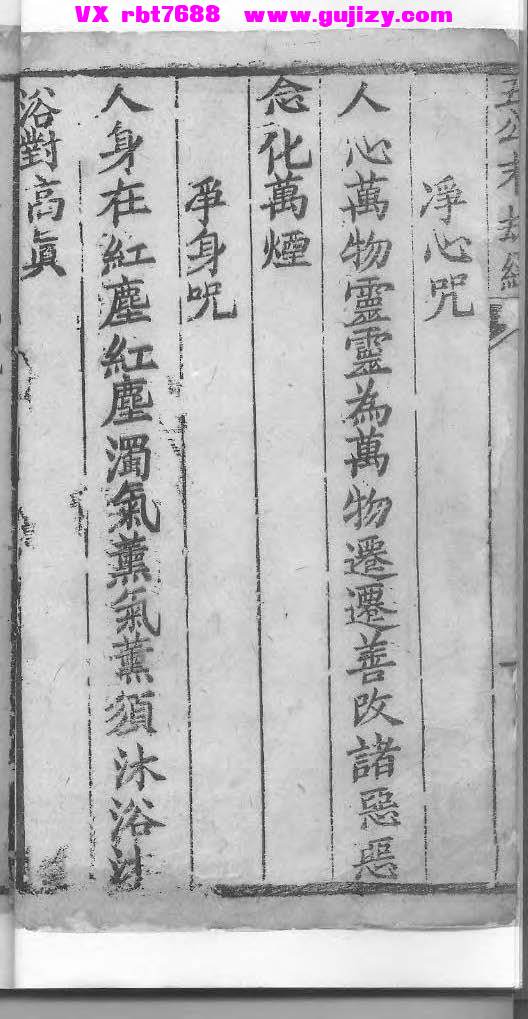 VX rbt7688 www.gujizy.com
五公末劫經
淨心咒
人心萬物靈靈為萬物遷遷善改諸惡惡
念化萬煙
淨身咒
人身在紅塵紅塵濁氣薰氣薰須沐浴沐
浴對高真
一